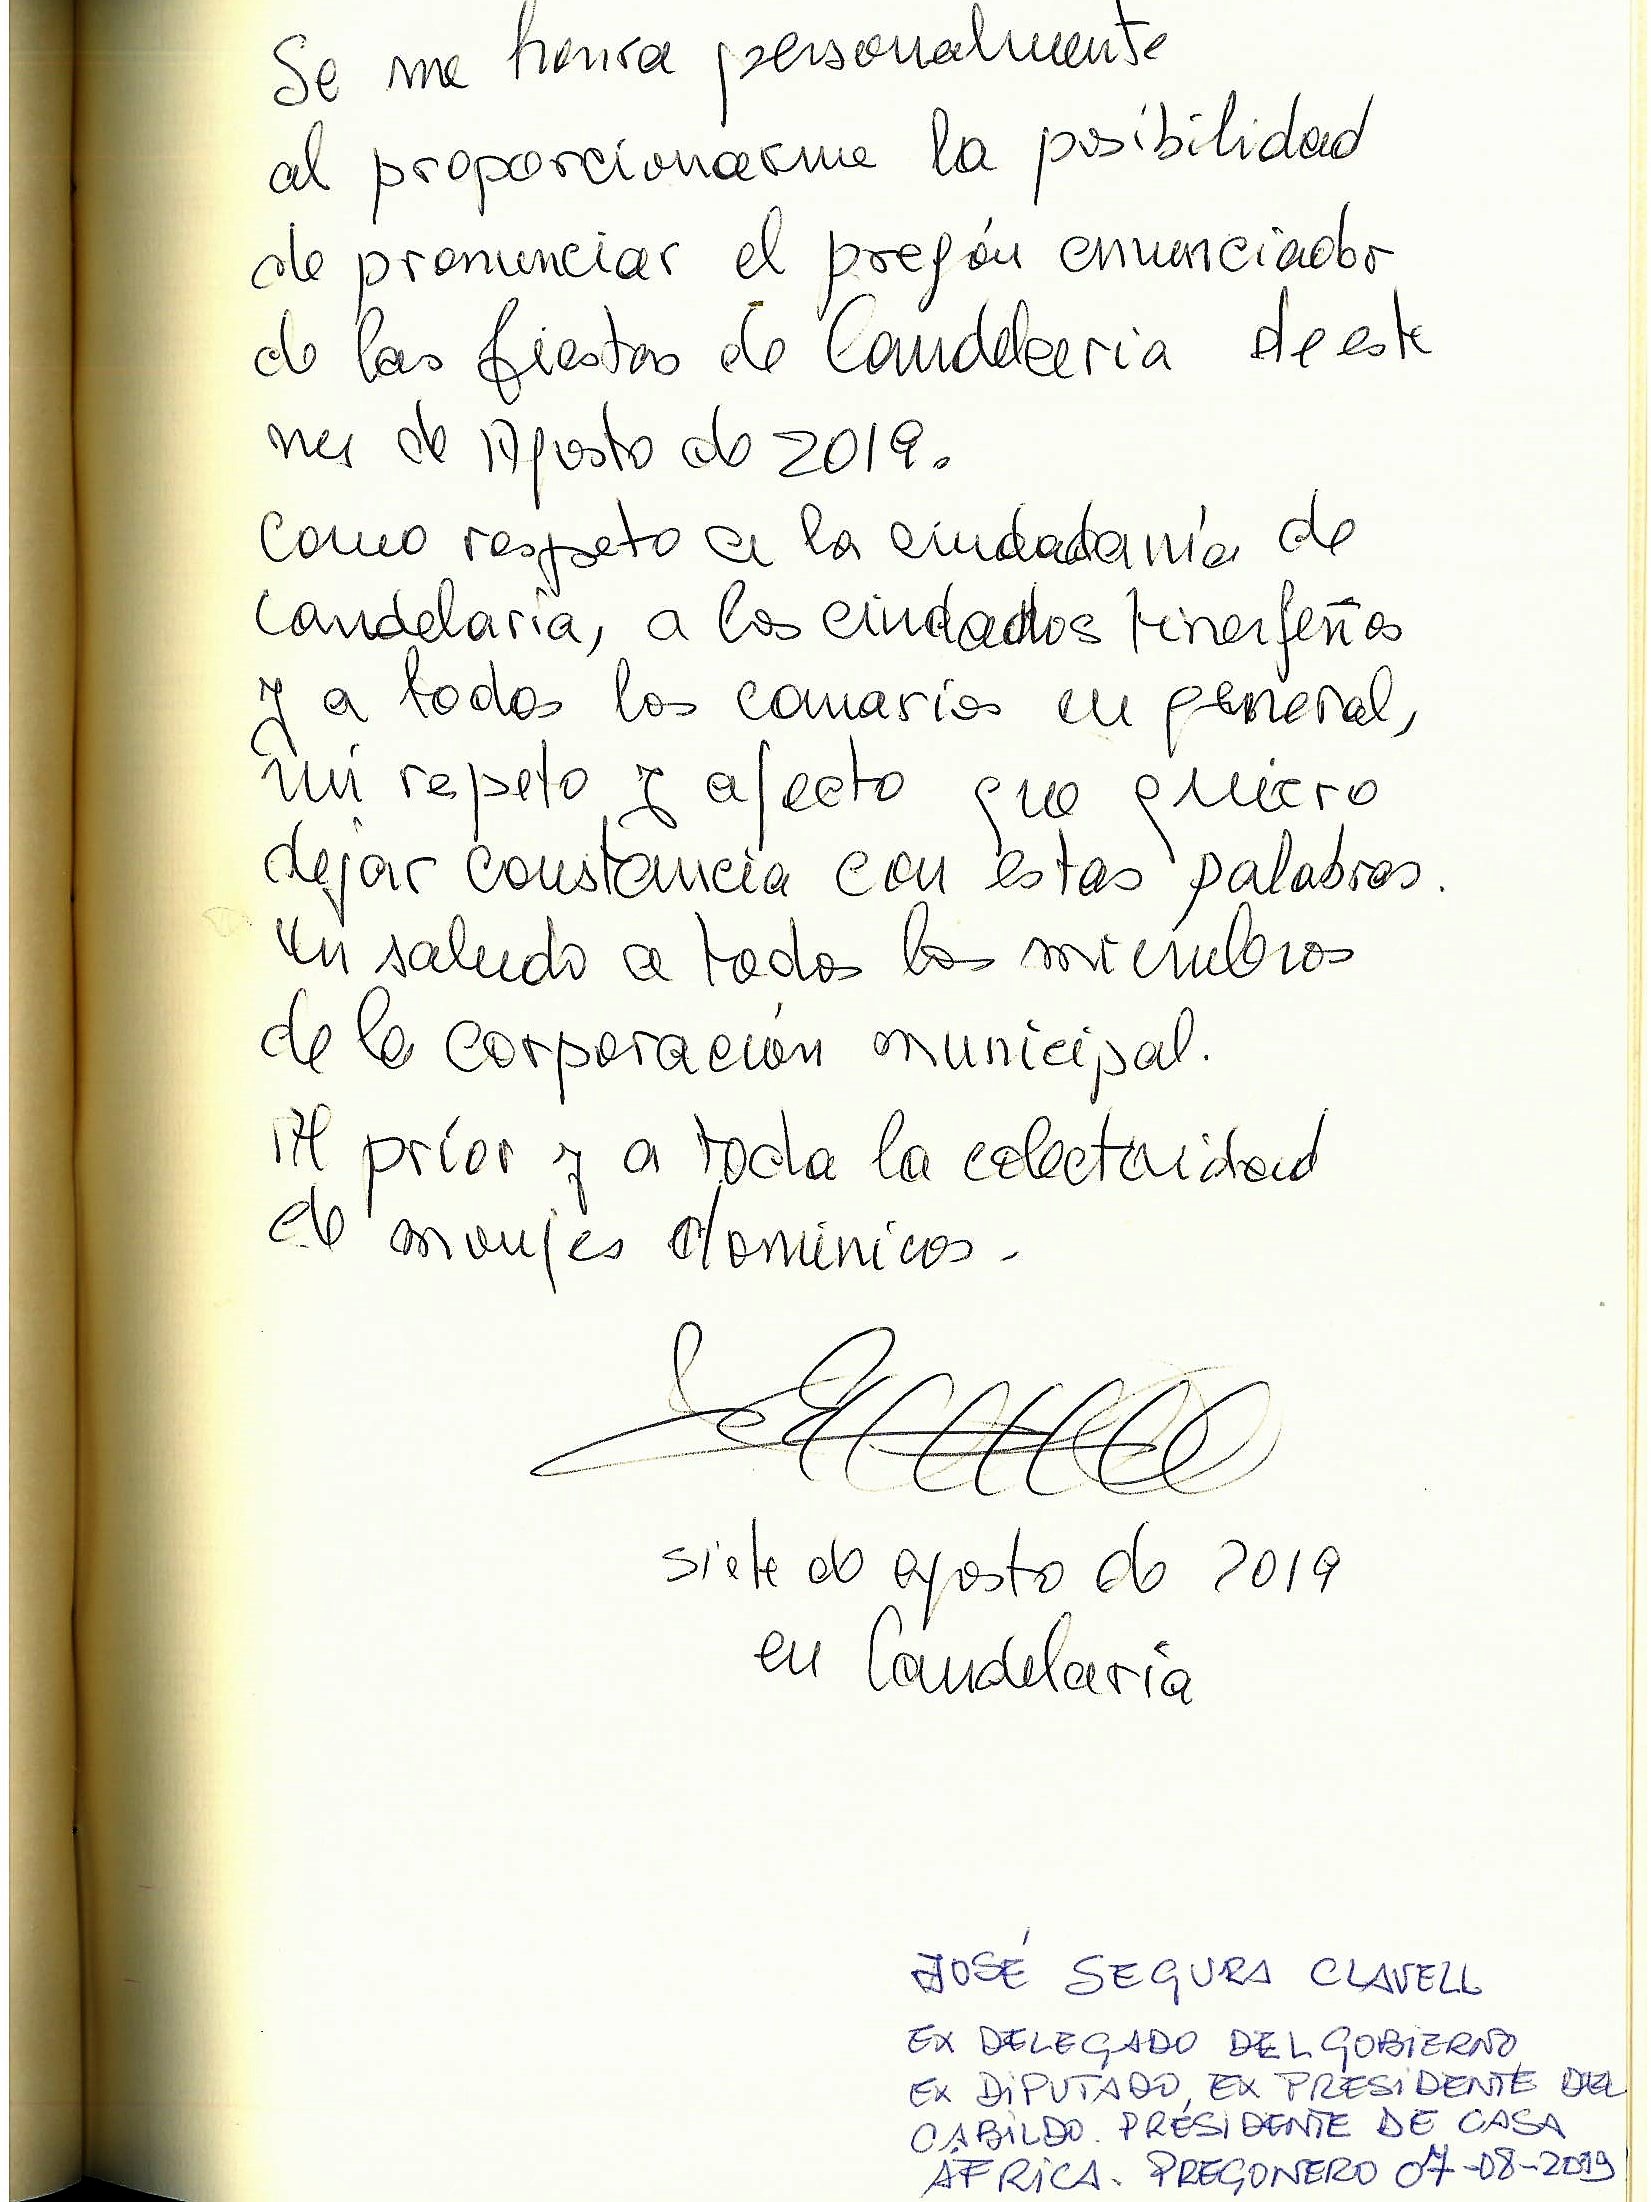 Se me honra personalmente
al proporcionarme la posibilidad
de pronunciar el pregón enunciador
de las fiestas de Candelaria de este
mes de Agosto de 2019.
Como respeto a la ciudadanía de
Candelaria, a los ciudados tinerfeños
y a todos los canarios en general,
mi repeto y afecto que quiero
dejar constancia con estas palabras.
Un saludo a todos los miembros
de la corporación municipal.
Al prior y a toda la colectividad
de monjes dominicos.
siete de agosto de 2019
en Candelaria
JOSÉ SEGURA CLAVELL
EX DELEGADO DEL GOBIERNO,
EX DIPUTADO, EX PRESIDENTE DEL
CABILDO. PRESIDENTE DE CASA
ÁFRICA. PREGONERO 07-08-2019